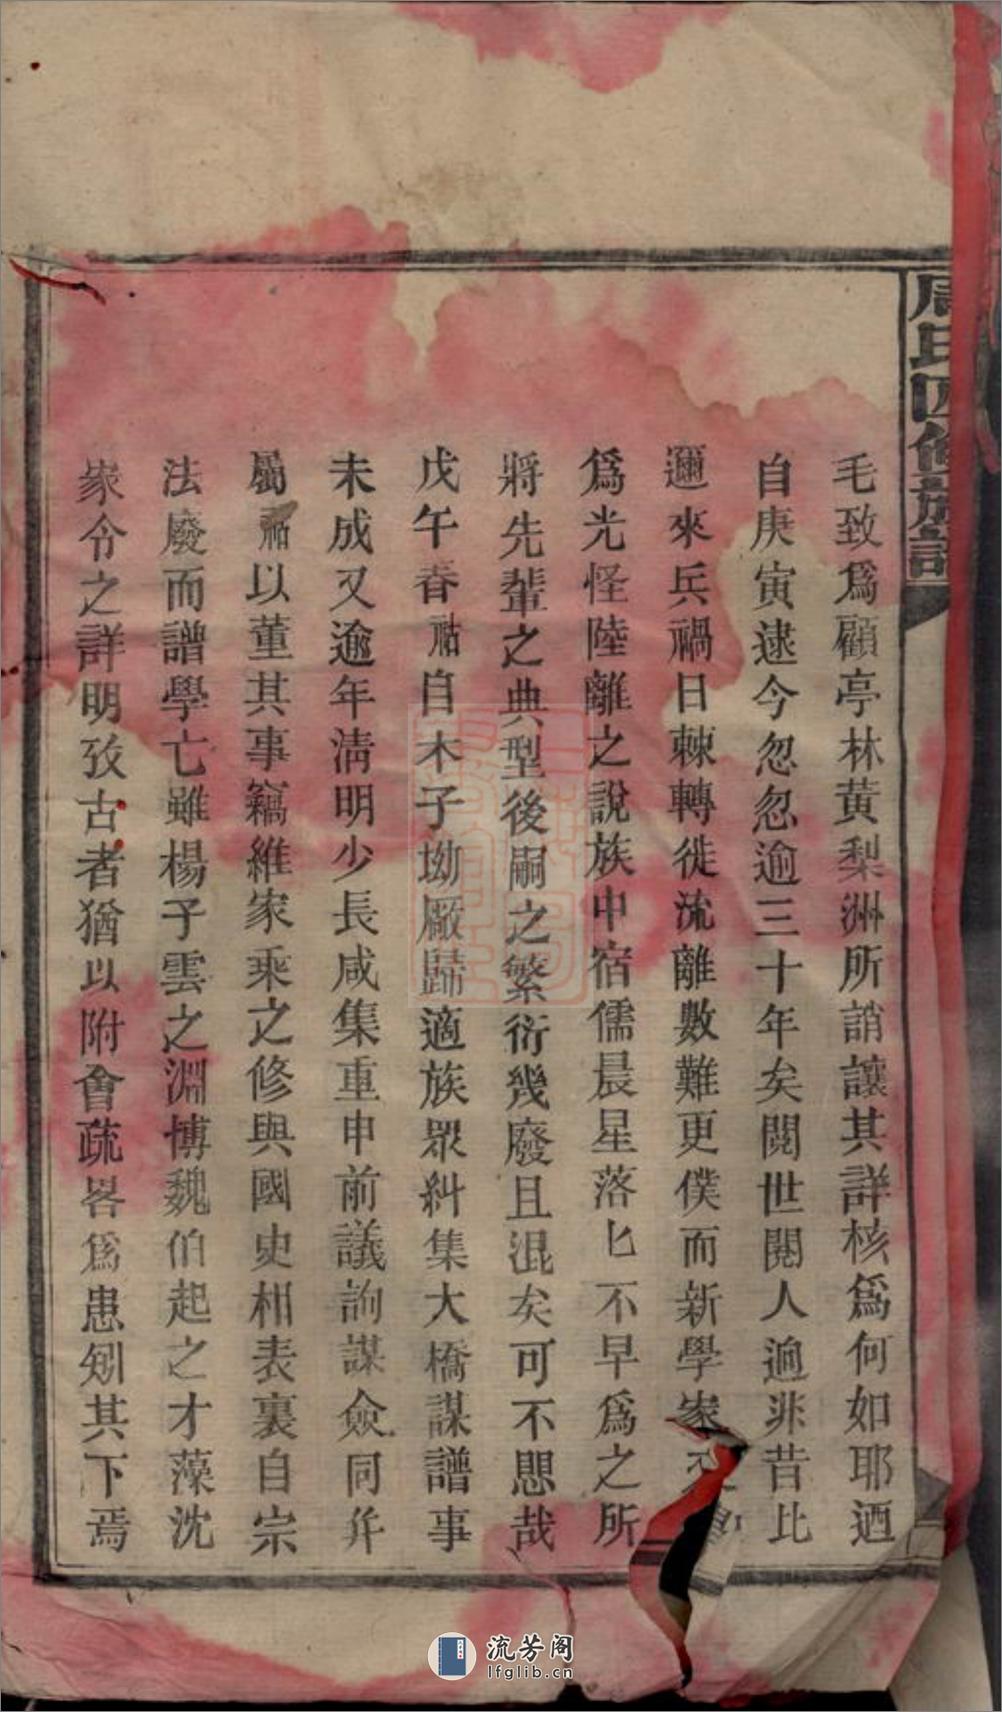 周氏四修族譜
毛致爲顧亭林黃梨洲所誚讓其詳核爲何如耶迺
自庚寅逮今忽忽逾三十年矣閱世閱人逈非昔比
邇來兵禍日棘轉徙流離數難更僕而新學家又
爲光怪陸離之說族中宿儒晨星落匕不早爲之所
將先輩之典型後嗣之繁衍幾廢且混矣可不思哉
戊午春祜自木子坳厰歸適族眾糾集大橋謀譜事
未成又逾年淸明少長咸集重申前議詢謀僉同幷
屬祜以董其事竊維家乘之修與國史相表裏自宗
法廢而譜學亡雖楊子雲之淵博魏伯起之才藻沈
家令之詳明攷古者猶以附會疏畧爲患矧其下焉
流芳阁
lfglib.cn